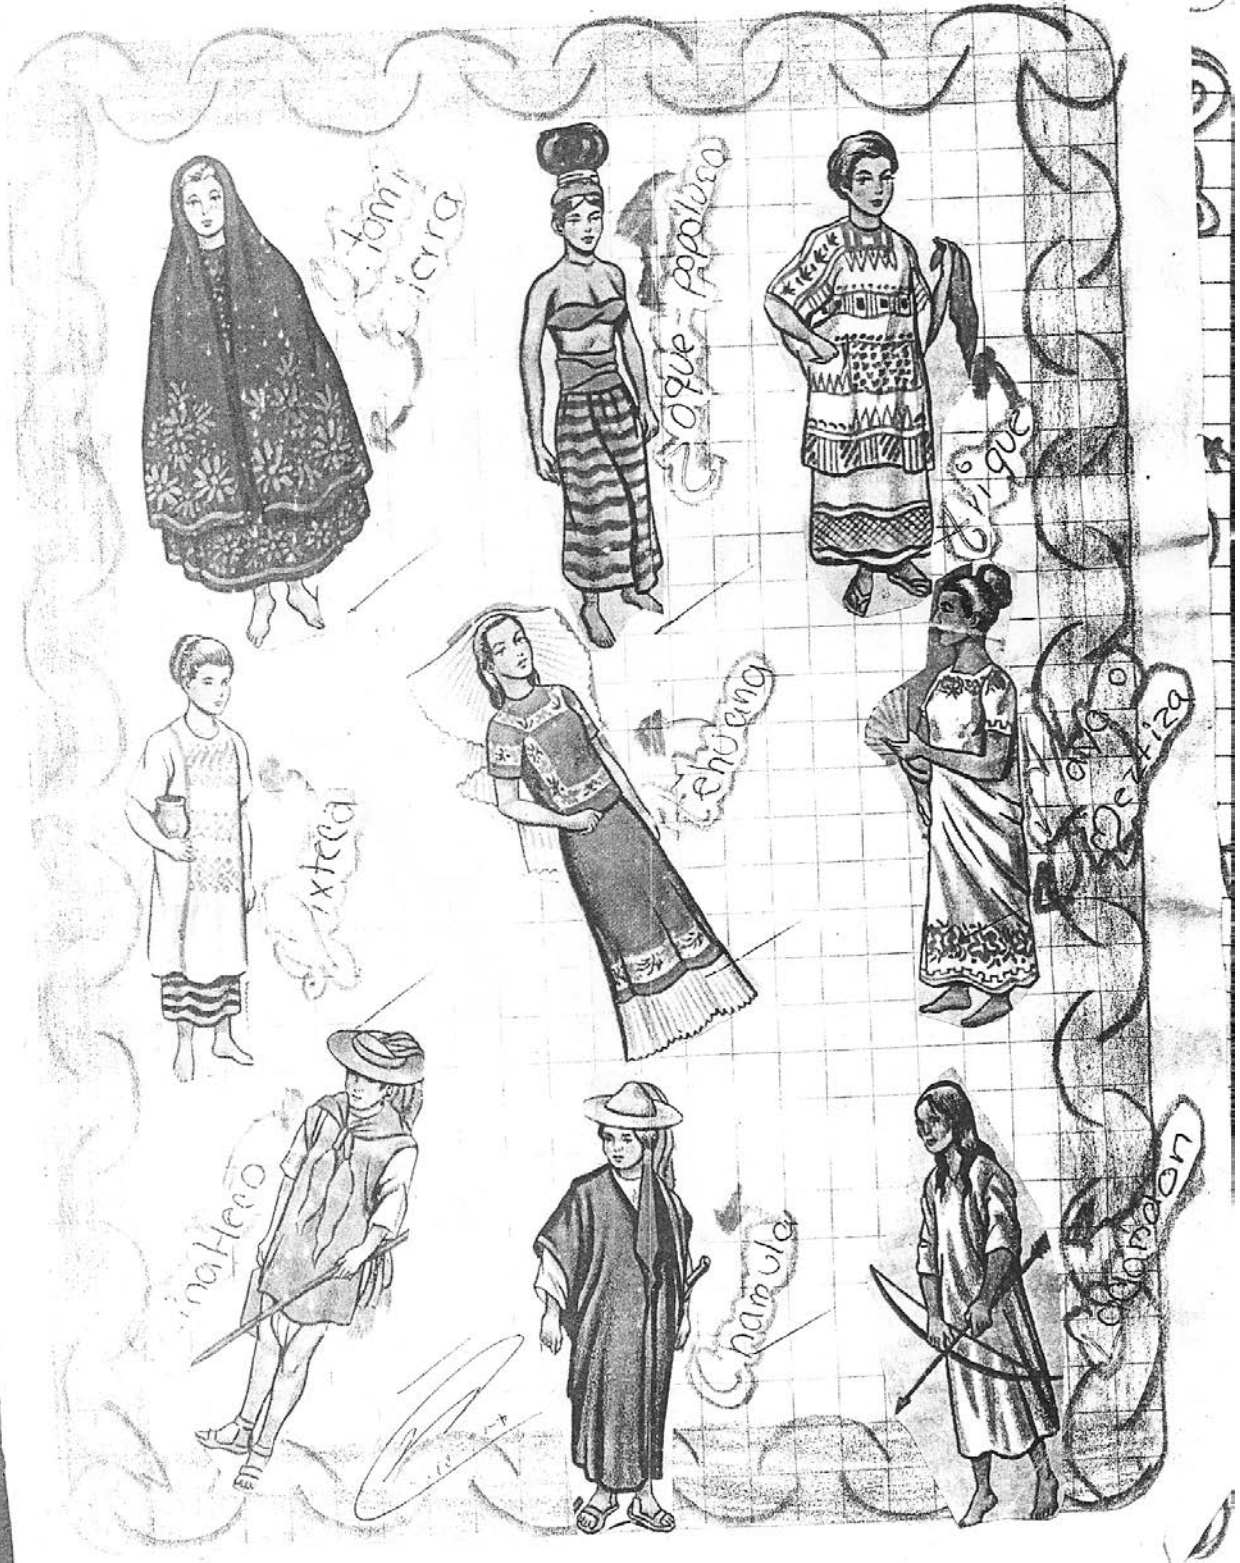 Otomi
Sierra
Zoque-Popoluca
Trique
Mixteca
Tehuana
Maya o
Meztiza
Chamula
Lacandon